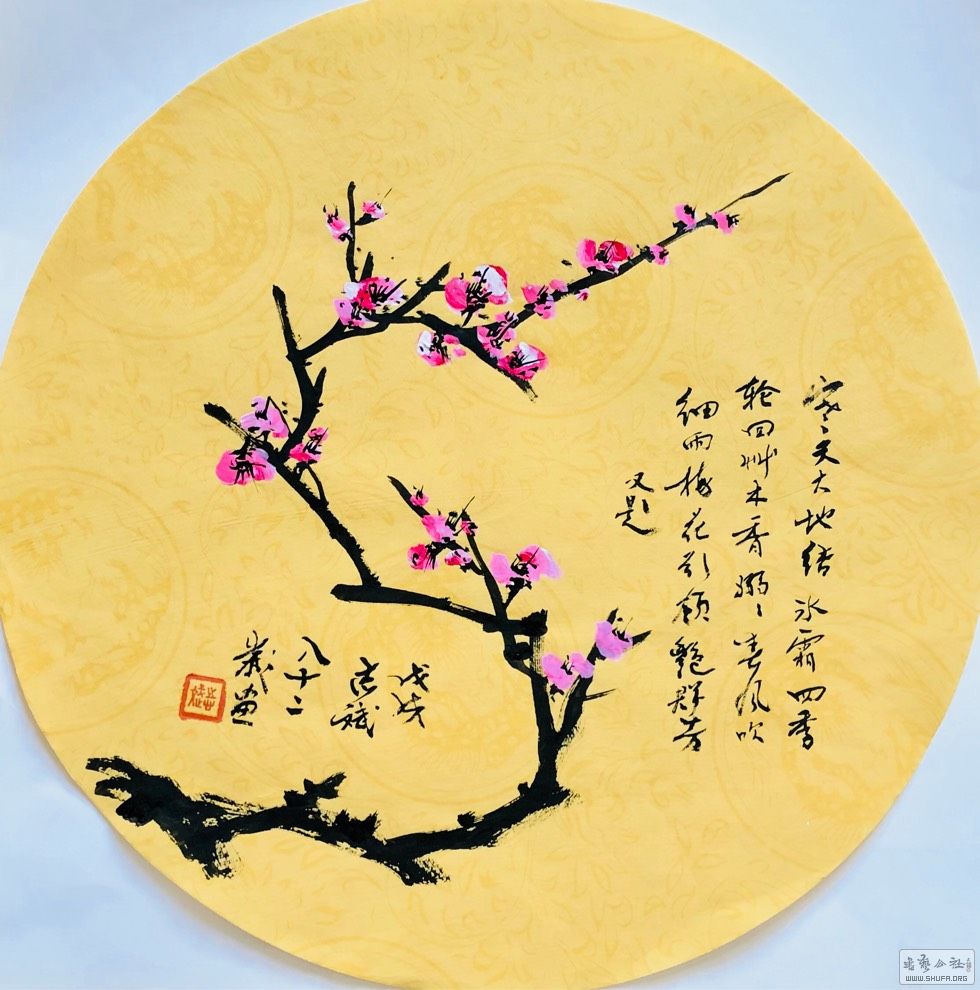 寒天大地结冰霜四季
轮回艸木香溺〻春风吹
细雨梅花引领艳群芳
又题
戊戌
古斌
八十二
岁画
书艺公社
WWW.SHUFA.ORG